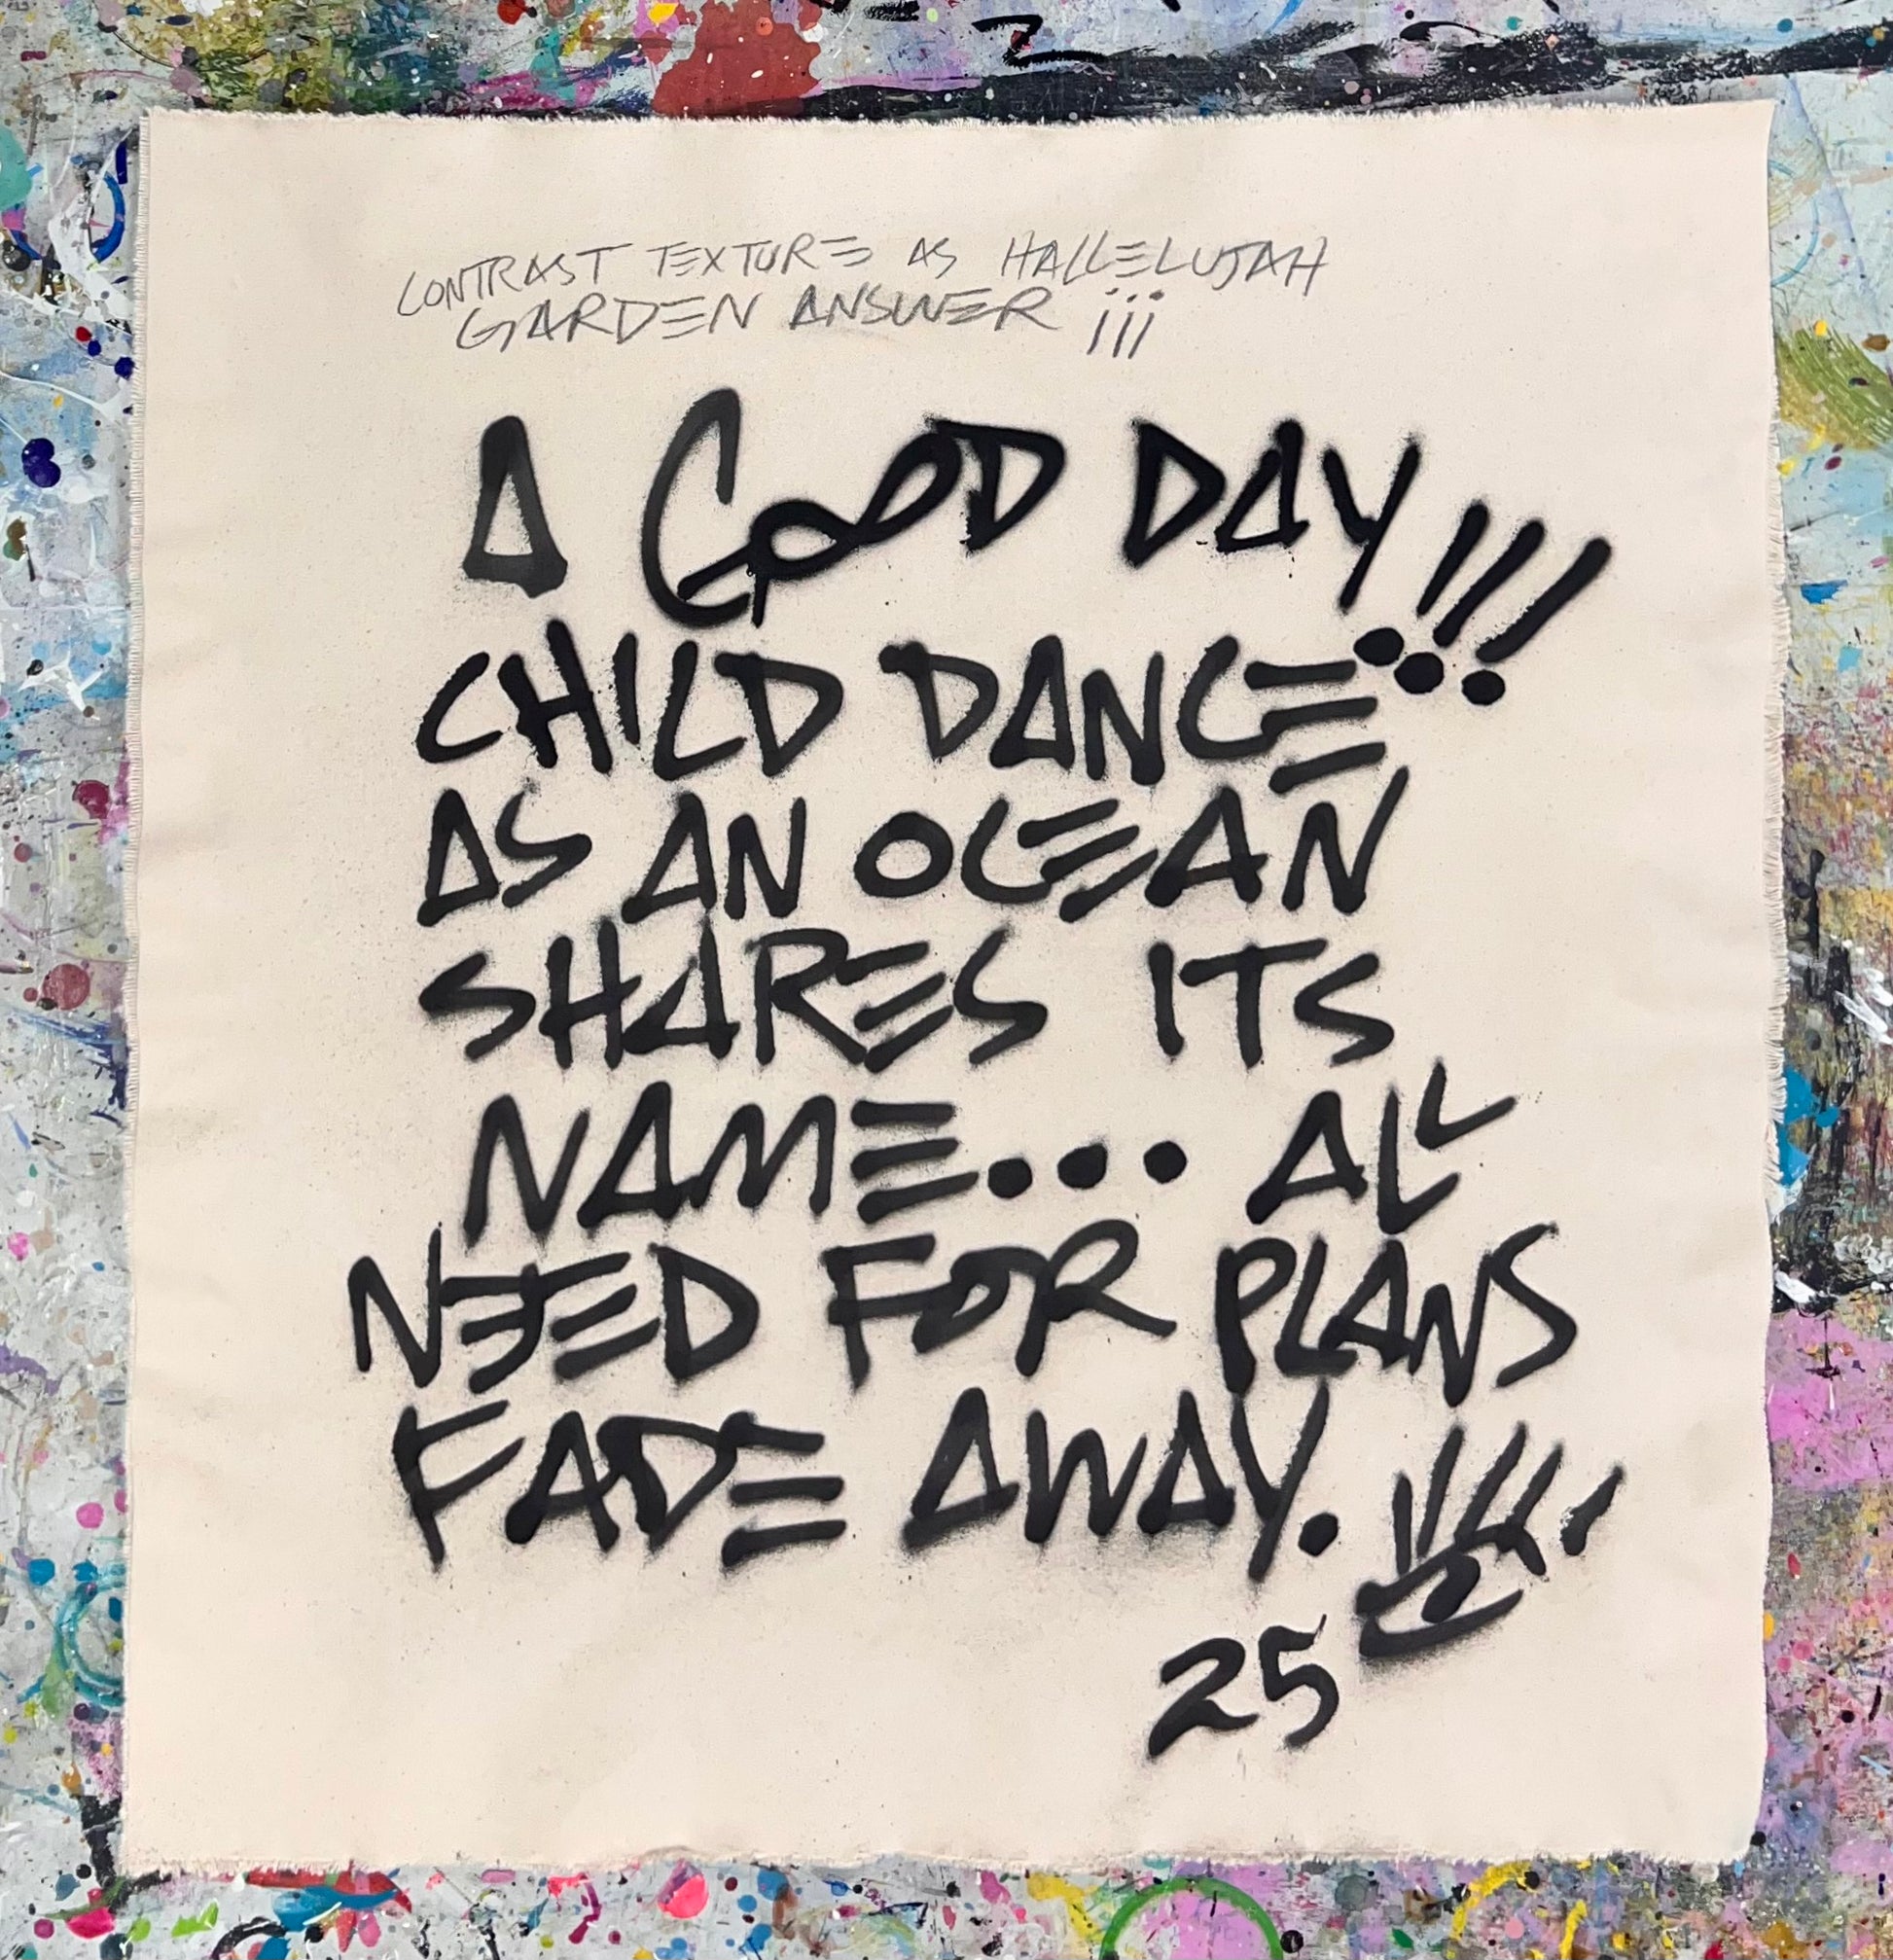 CONTRAST TEXTURE AS HALLELUJAH
GARDEN ANSWER iii
A GOOD DAY!!!
CHILD DANCE
AS AN OCEAN
SHARES ITS
NAME... ALL
NEED FOR PLANS
FADE AWAY.
25